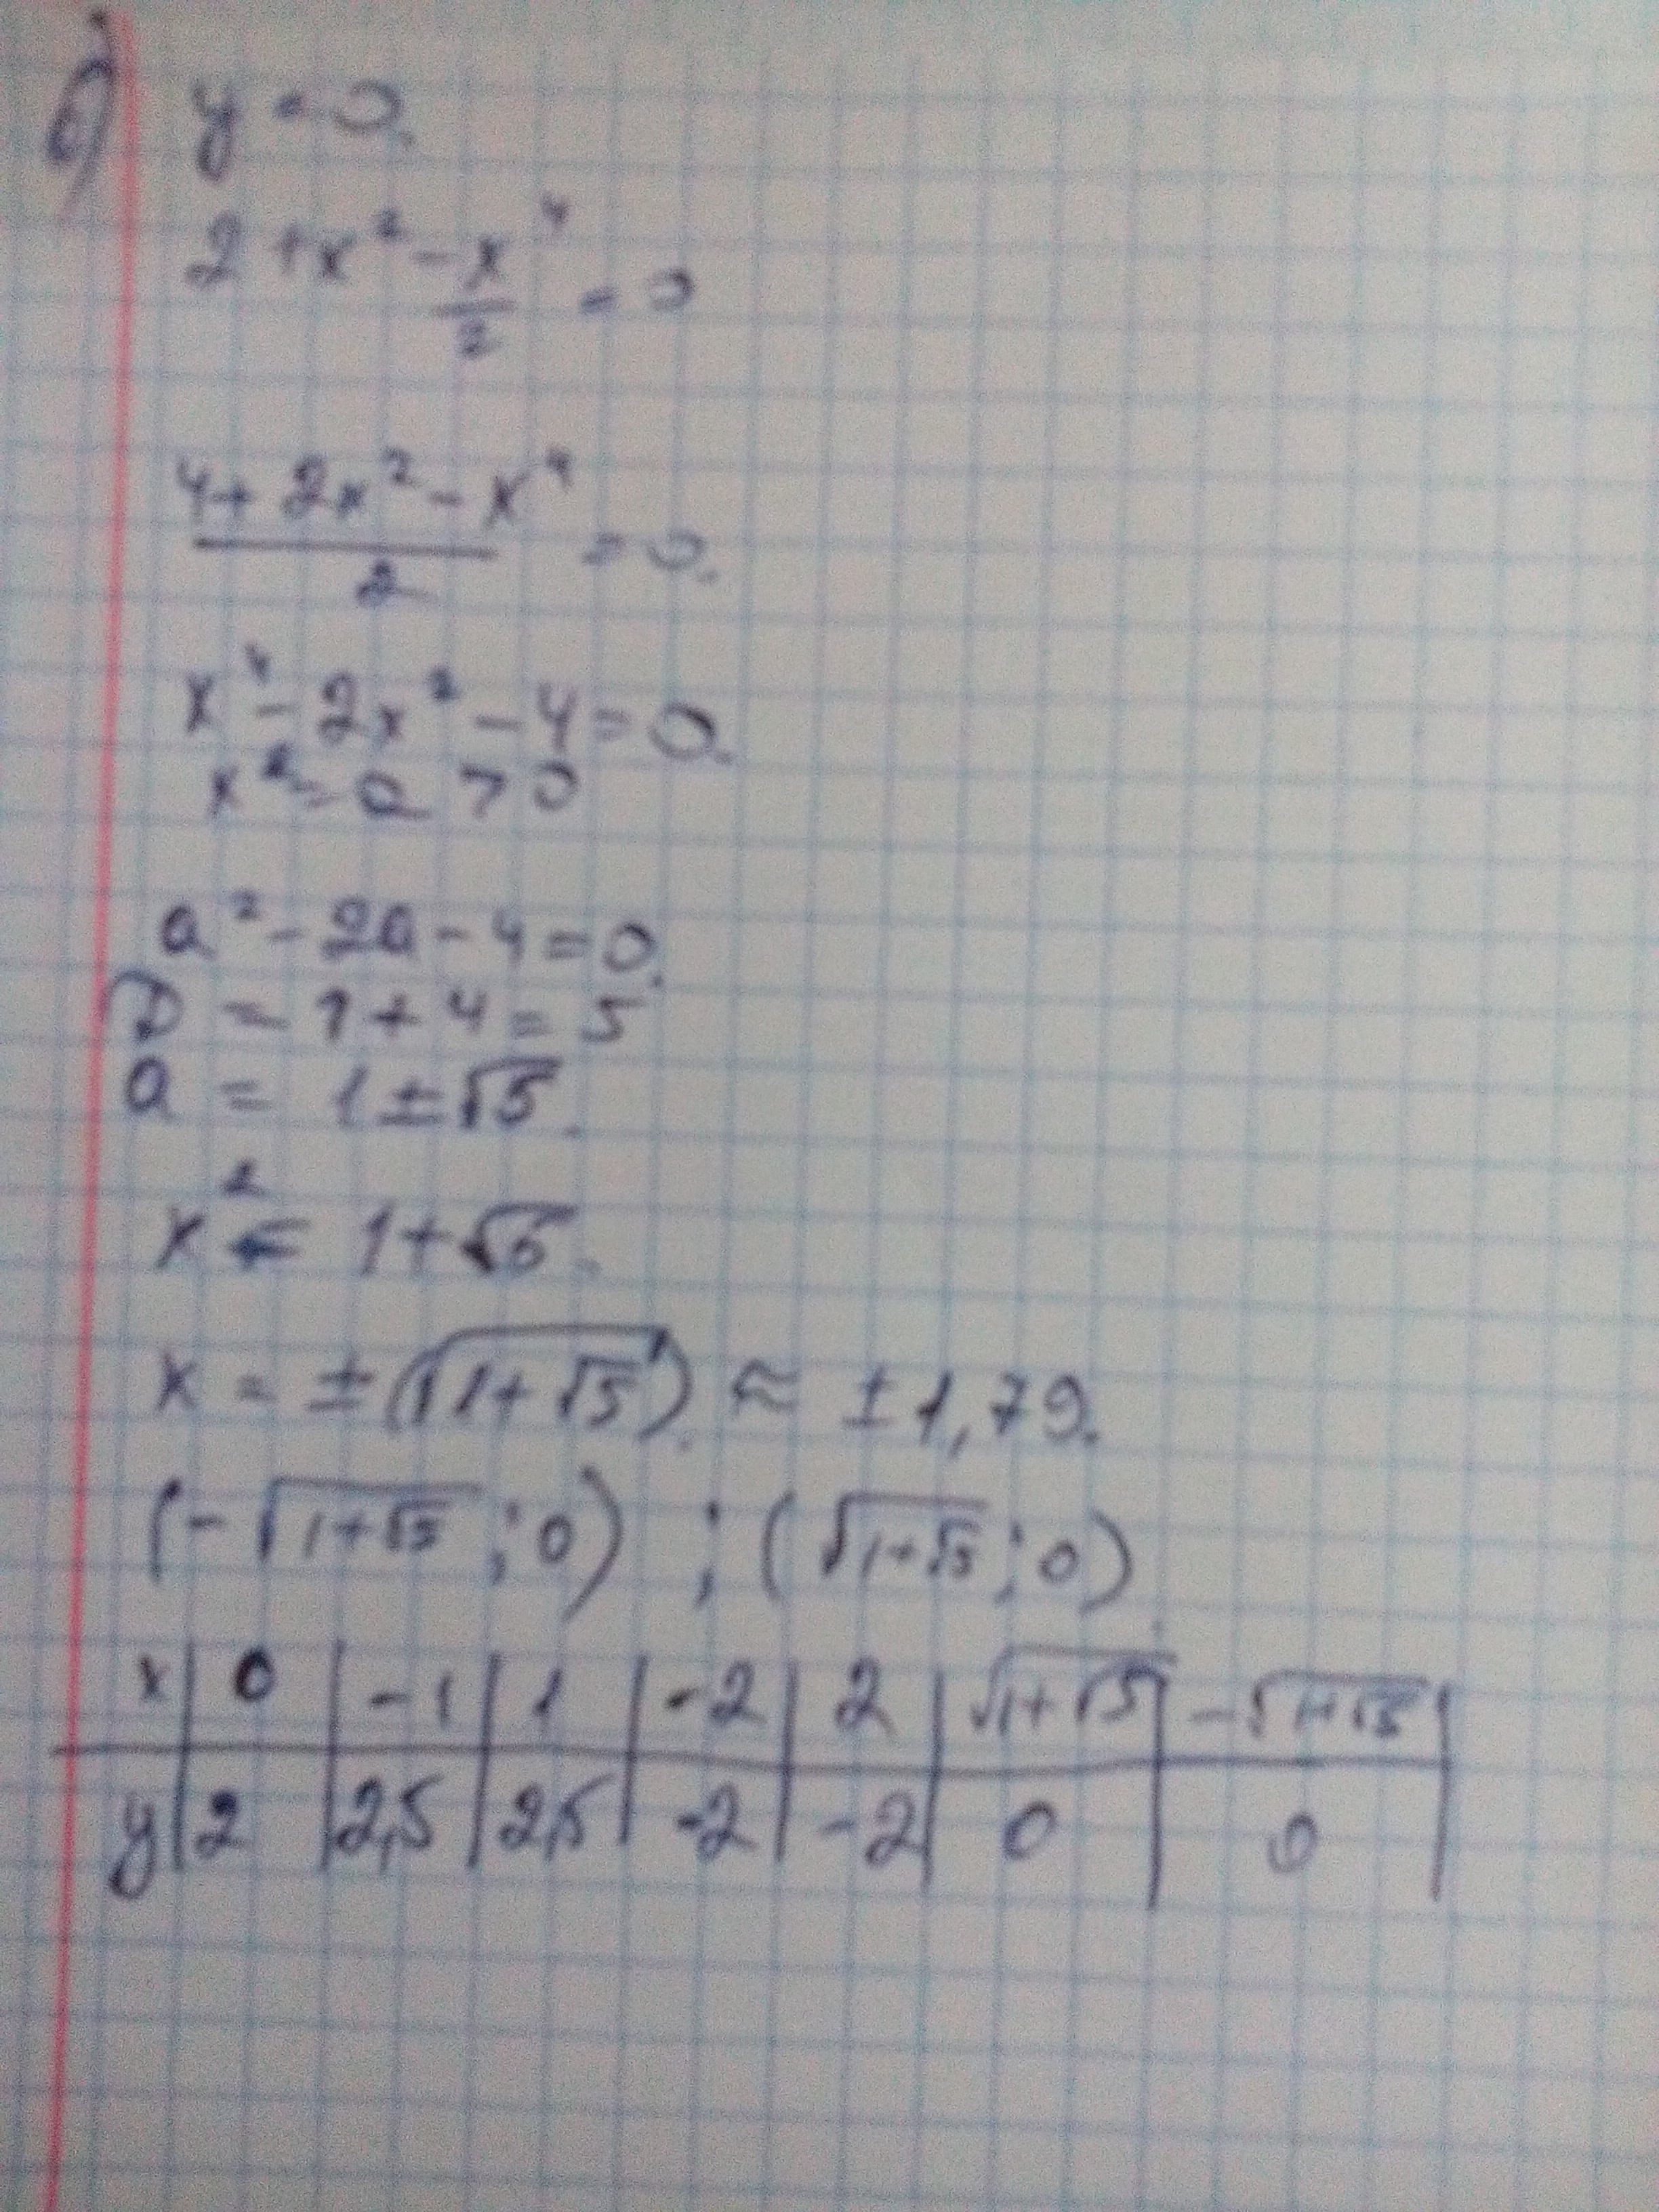 б) y = 0.
2 + x² - x⁴/2 = 0
(4 + 2x² - x⁴)/2 = 0.
x⁴ - 2x² - 4 = 0.
x² = a > 0
a² - 2a - 4 = 0.
D = 1 + 4 = 5
a = 1 ± √5.
x² = 1 + √5.
x = ±(√(1 + √5)). ≈ ±1,79.
(-√(1+√5) ; 0) ; (√(1+√5) ; 0).
x | 0 | -1 | 1 | -2 | 2 | √(1+√5) | -√(1+√5) |
y | 2 | 2,5 | 2,5 | -2 | -2 | 0 | 0 |